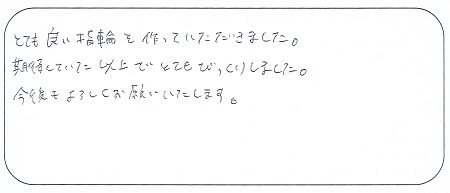 とても良い指輪を作っていただきました。
期待していた以上でとてもびっくりしました。
今後もよろしくお願いいたします。